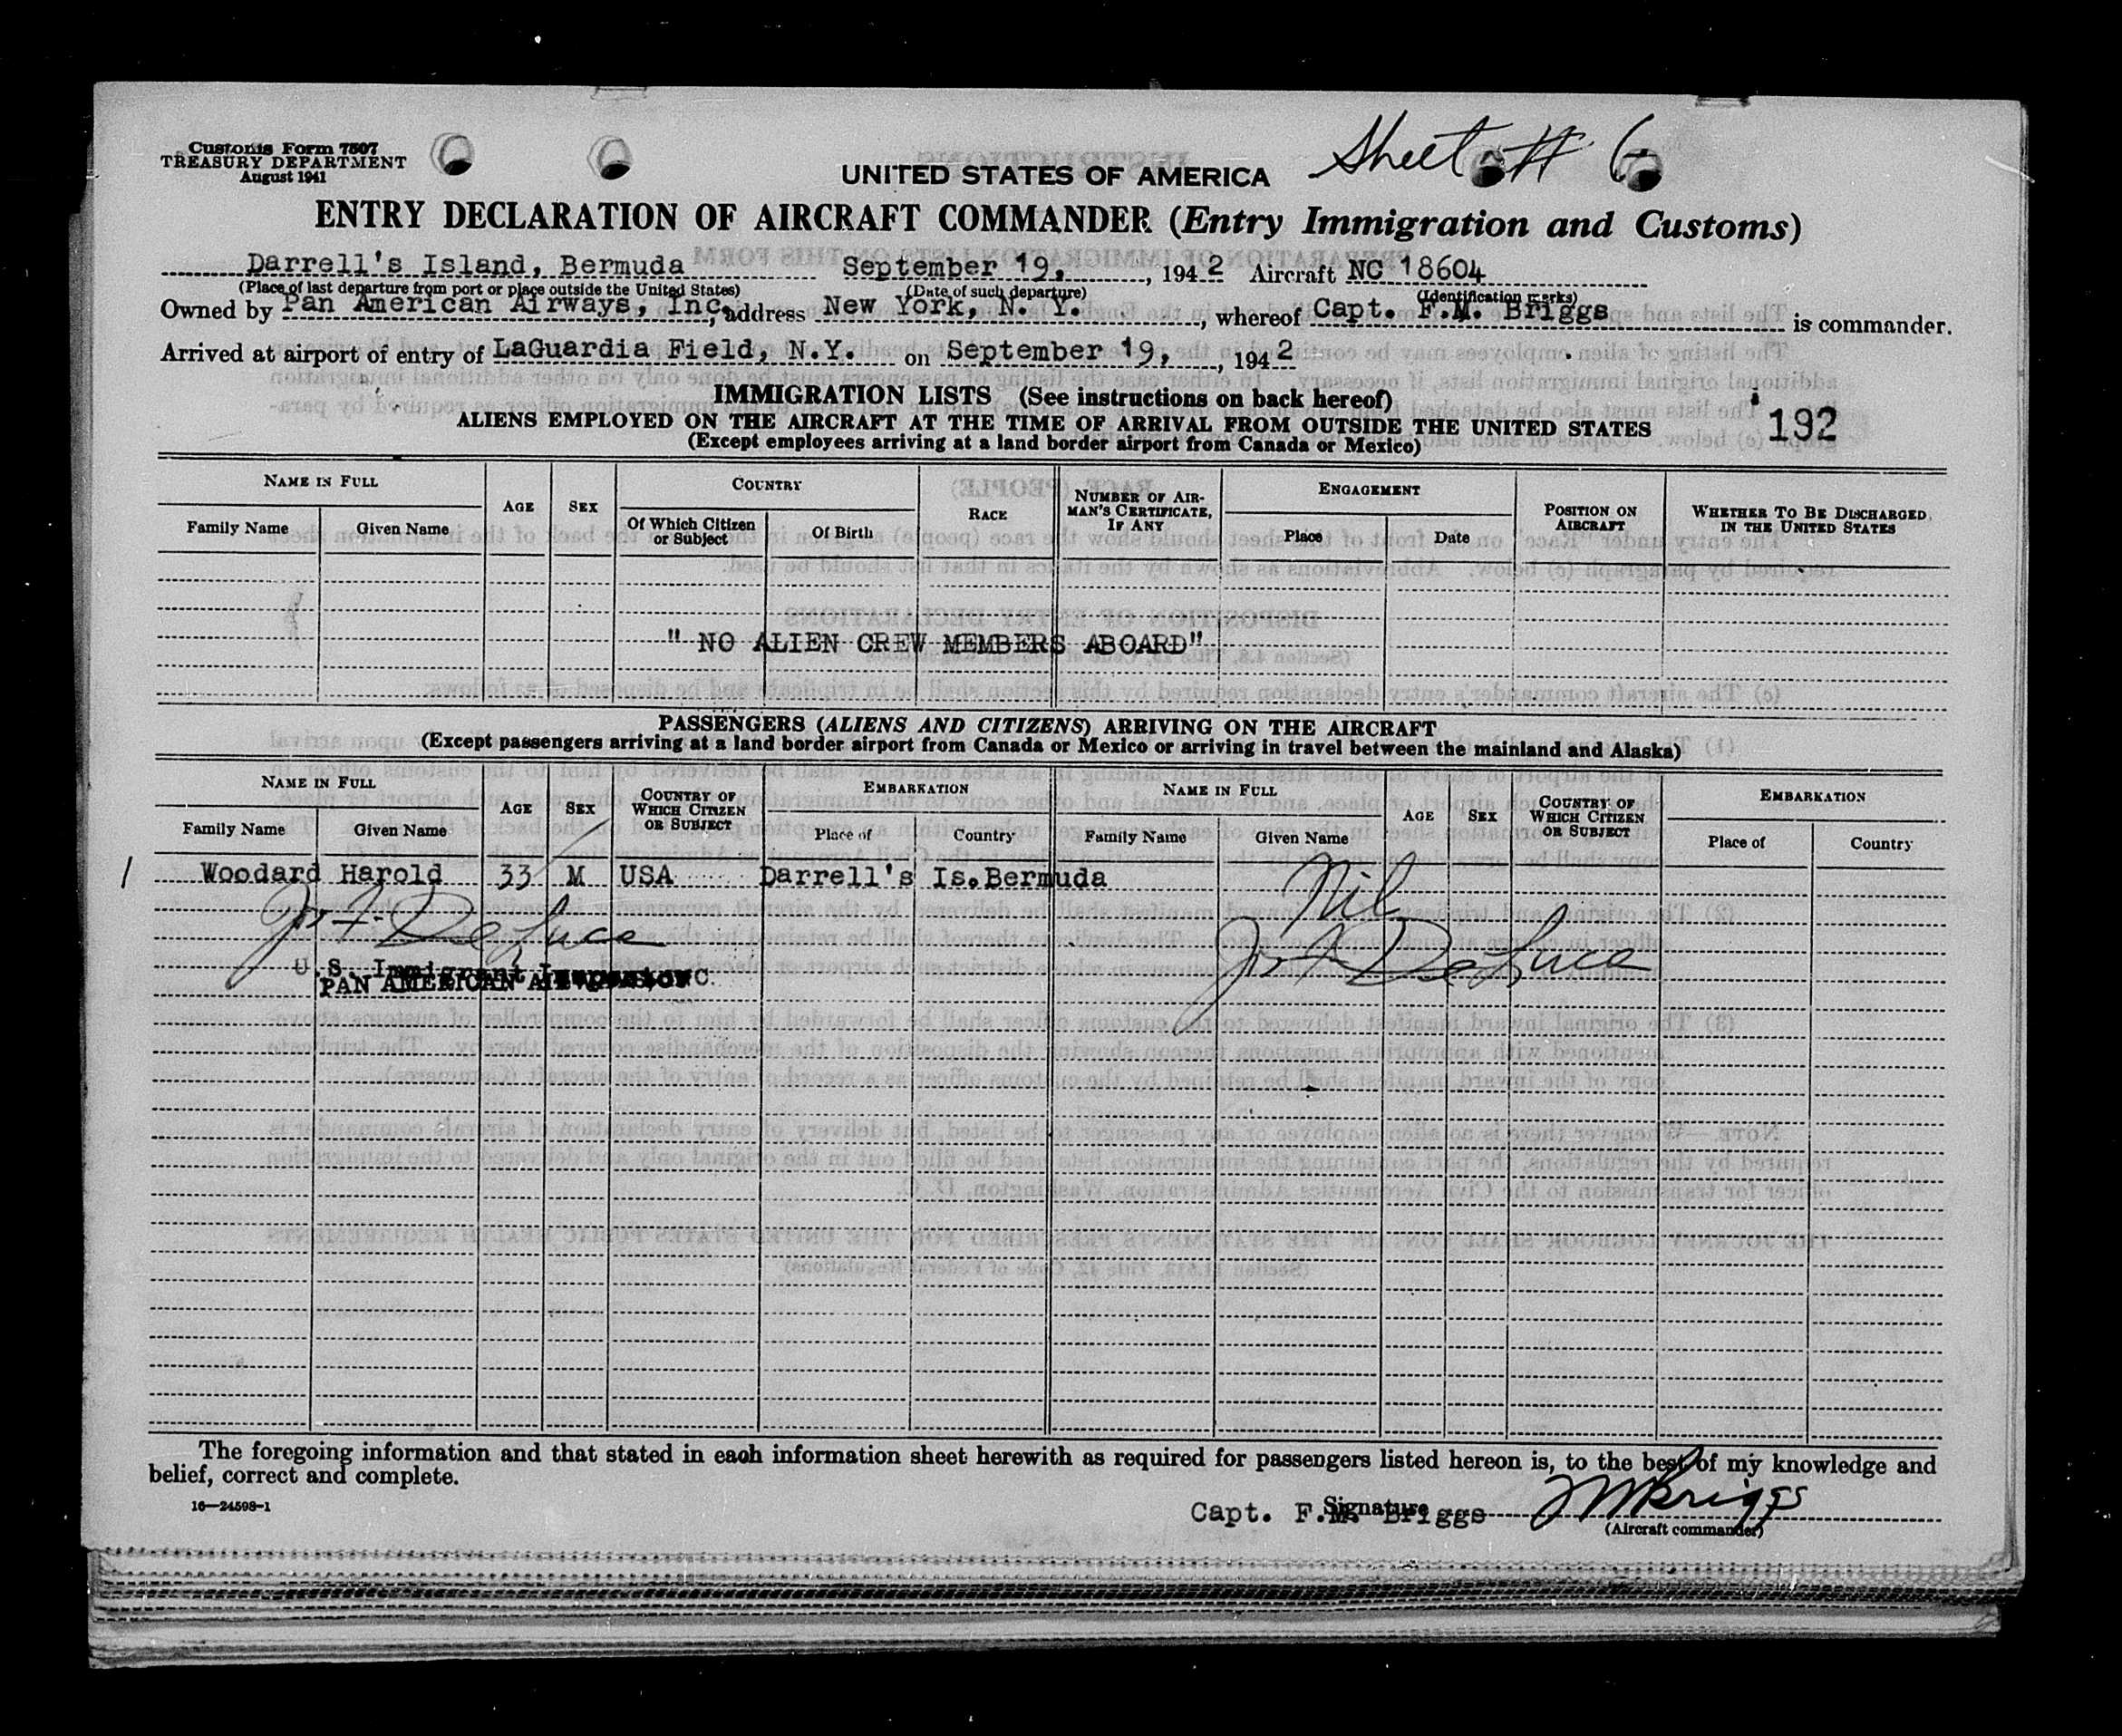 Customs Form 7507
TREASURY DEPARTMENT
August 1941
Sheet # 6
UNITED STATES OF AMERICA
ENTRY DECLARATION OF AIRCRAFT COMMANDER (Entry Immigration and Customs)
Darrell's Island, Bermuda September 19, , 1942 Aircraft NC 18604
(Place of last departure from port or place outside the United States) (Date of such departure) (Identification marks)
Owned by Pan American Airways, Inc., address New York, N. Y. , whereof Capt. F.M. Briggs is commander.
Arrived at airport of entry of LaGuardia Field, N.Y. on September 19, , 1942
IMMIGRATION LISTS (See instructions on back hereof)
ALIENS EMPLOYED ON THE AIRCRAFT AT THE TIME OF ARRIVAL FROM OUTSIDE THE UNITED STATES 192
(Except employees arriving at a land border airport from Canada or Mexico)
NAME IN FULL AGE SEX COUNTRY RACE NUMBER OF AIRMAN'S CERTIFICATE, IF ANY ENGAGEMENT POSITION ON AIRCRAFT WHETHER TO BE DISCHARGED IN THE UNITED STATES
Family Name Given Name Of Which Citizen or Subject Of Birth Place Date
" NO ALIEN CREW MEMBERS ABOARD"
PASSENGERS (ALIENS AND CITIZENS) ARRIVING ON THE AIRCRAFT
(Except passengers arriving at a land border airport from Canada or Mexico or arriving in travel between the mainland and Alaska)
NAME IN FULL AGE SEX COUNTRY OF WHICH CITIZEN OR SUBJECT EMBARKATION NAME IN FULL AGE SEX COUNTRY OF WHICH CITIZEN OR SUBJECT EMBARKATION
Family Name Given Name Place of Country Family Name Given Name Place of Country
1 Woodard Harold 33 M USA Darrell's Is. Bermuda Nil
U.S. Immigrant Inspector
PAN AMERICAN
The foregoing information and that stated in each information sheet herewith as required for passengers listed hereon is, to the best of my knowledge and
belief, correct and complete.
16—24598-1
Capt. F.M. Briggs Signature FMBriggs
(Aircraft commander)